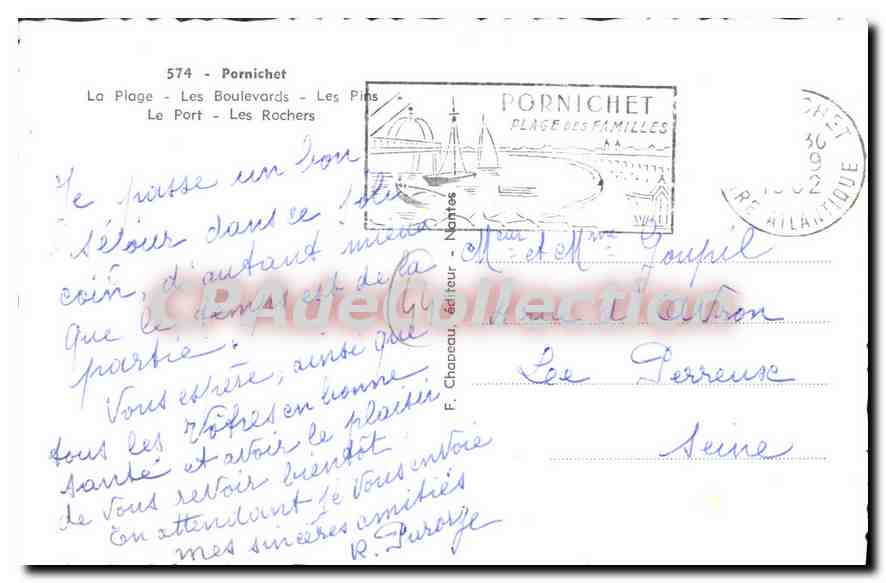 574 - Pornichet
La Plage - Les Boulevards - Les Pins
Le Port - Les Rochers
PORNICHET
PLAGE DES FAMILLES
CHET
30
9
1962
RE ATLANTIQUE
Je passe un bon
séjour dans ce joli
coin, d'autant mieux
que le temps est de la
partie.
Vous espère, ainsi que
tous les Vôtres en bonne
santé et avoir le plaisir
de vous revoir bientôt.
En attendant je vous envoie
mes sincères amitiés
R.
F. Chapeau, éditeur - Nantes
44
Meur et Mme Joupil
d'Avron
Lee Perreux
Seine
CPAdeCollection